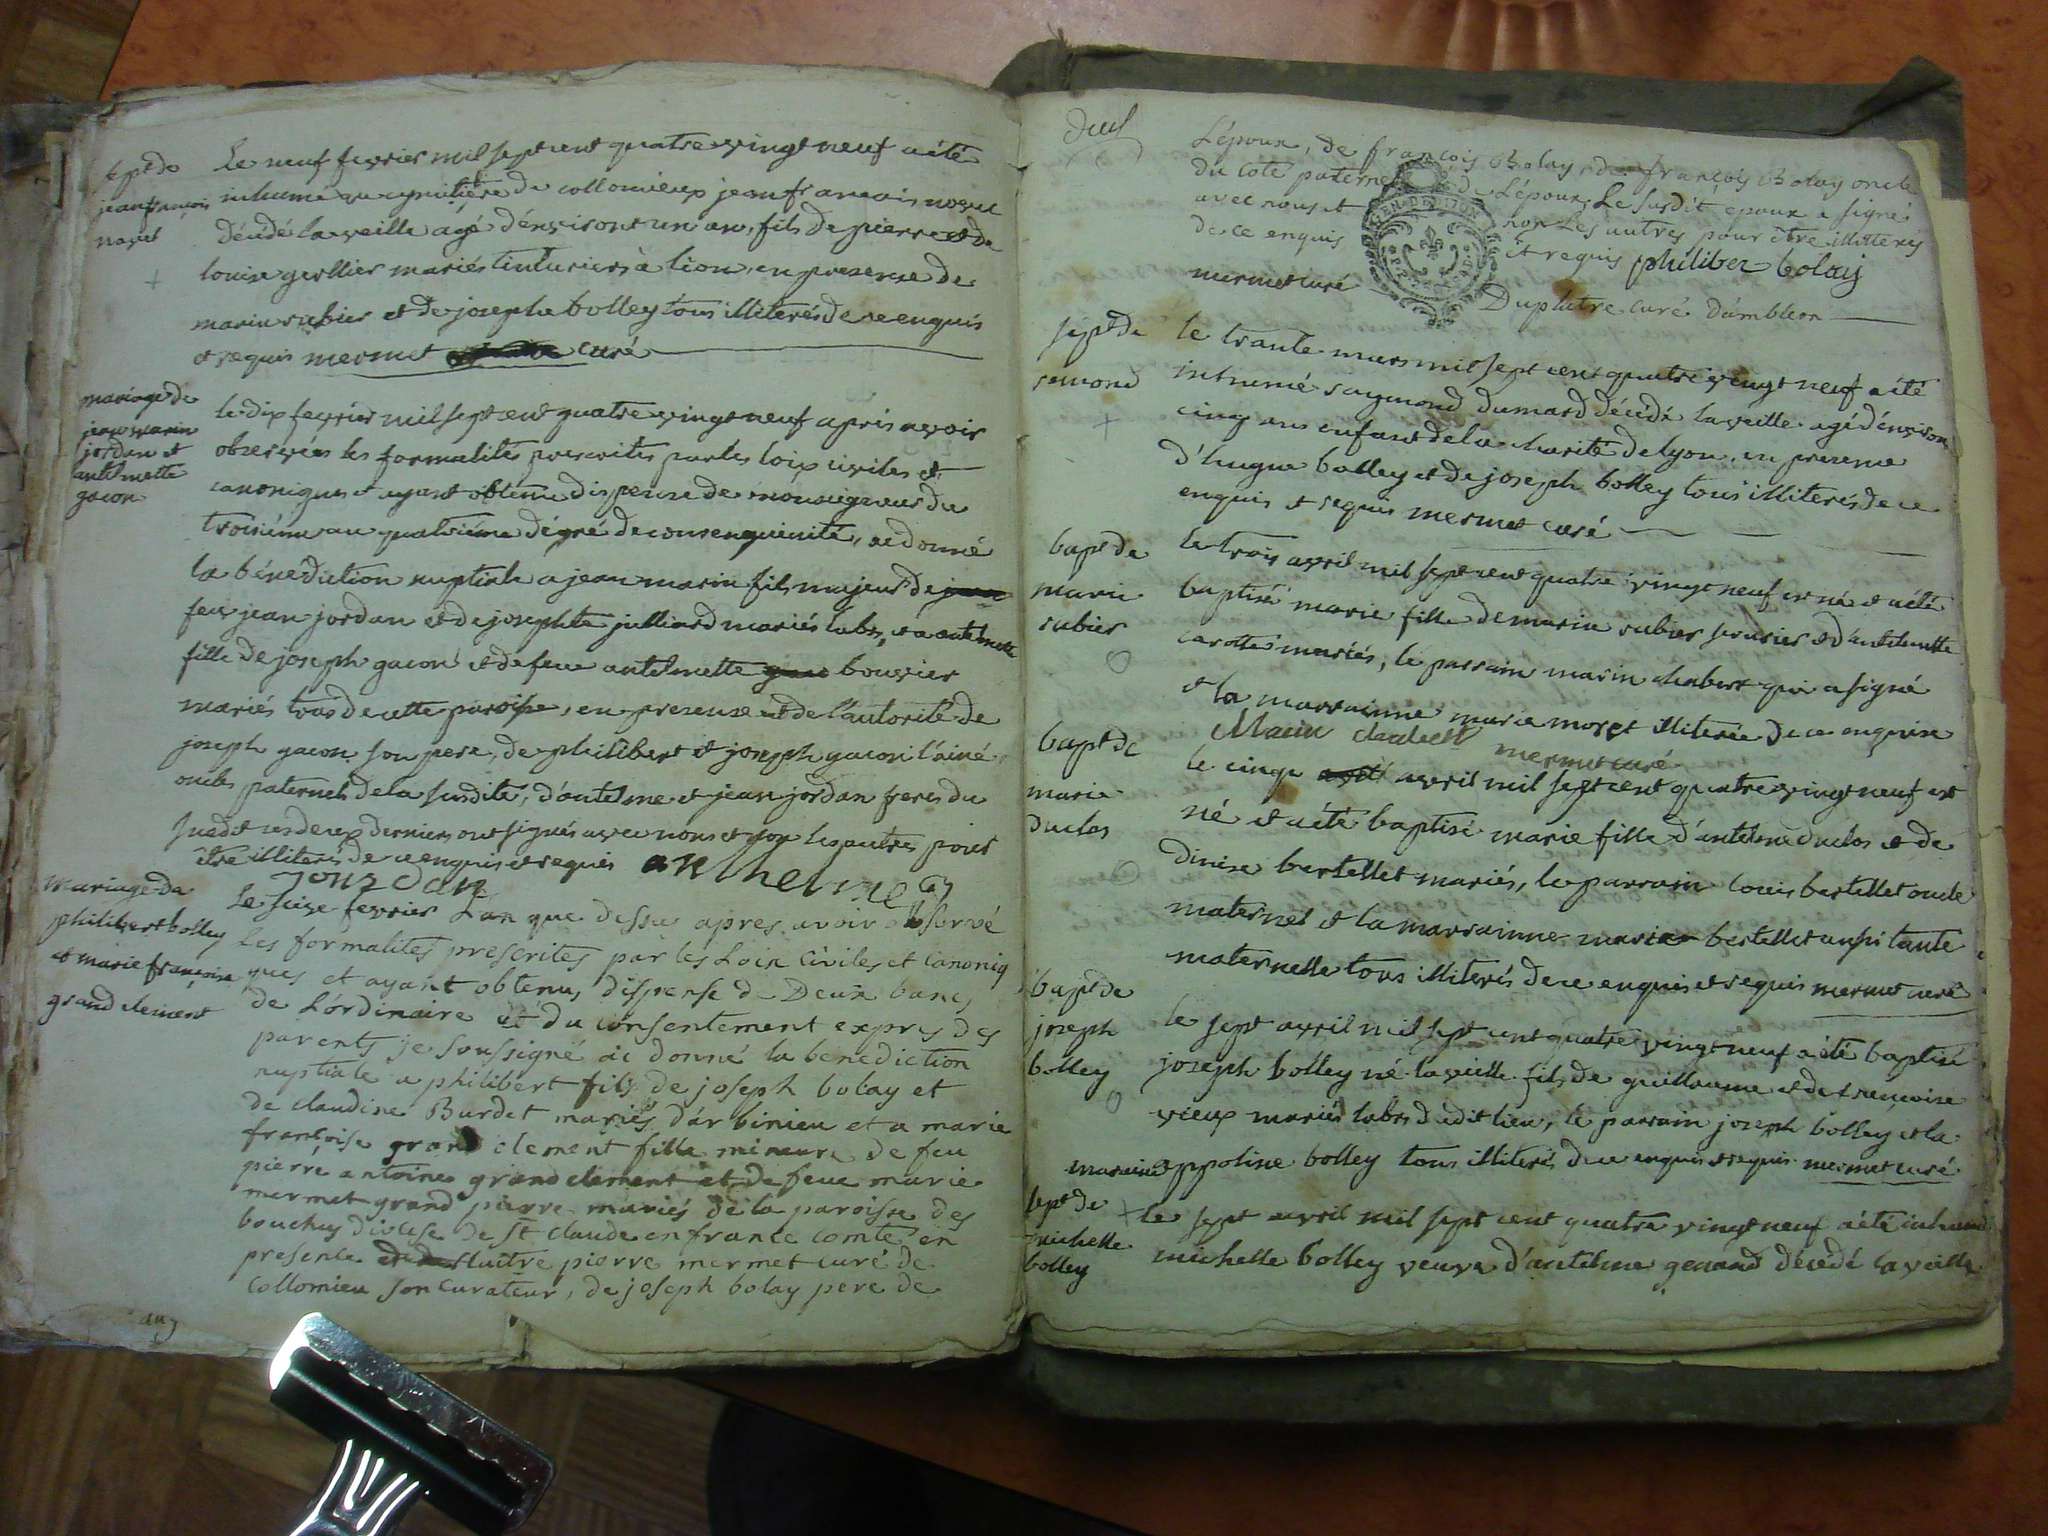 sept de
jean françois
novel
Le neuf fevrier mil sept cent quatre vingt neuf a été
inhumé au cymitière de collomieux jean francois novel
décédé la veille agé d'environt un an, fils de pierre et de
louise gerllier mariés tinturiers à lion, en presense de
marin rubier et de joseph bolley tous illiterés de ce enquis
et requis mermet curé
mariage de
jean marin
jordan et
antelmette
gacon
le dix fevrier mil sept cent quatre vingt neuf après avoir
observées les formalites prescrites par les loix civiles et
canoniques et ayant obtenu dispense de monseigneur du
troisiéme au quatriéme dégré de consenguinité, ai donné
la bénédiction nuptiale a jean marin fils majeur de
feu jean jordan et de josephte julliard mariés labrs, et a antelmette
fille de joseph gacon et de feue antelmette bouvier
mariés tous de cette paroisse, en presense et de l'autorité de
joseph gacon son pere, de philibert et joseph gacon l'ainé
oncles paternels de la susdite, d'antelme et jean jordan freres du
susdit ces deux derniers ont signés avec nous et non les autres pour
être illiterés de ce enquis et requis anthelme
jourdan
mariage de
philibert bolley
et marie françoise
grand clement
Le seise fevrier L'an que dessu apres avoir observé
les formalités prescrites par les Loix Civiles et Canoniq
ques et ayant obtenu, dispense de Deux bancs
de L'ordinaire et du consentement expres des
parents je soussigné ai donné la benediction
nuptiale a philibert fils de joseph bolay et
de claudine Burdet mariés d'arbinieu et a marie
françoise grand clement fille mineure de feu
pierre antoine grand clement et de feue marie
mermet grand pierre mariés de la paroisse des
bouchus diocese de St claude en franche comté en
presence Maitre pierre mermet curé de
Collomieu son curateur, de joseph bolay pere de
L'époux, de françois Bolay, de françois Bolay oncle
du coté paternel de L'époux. Le susdit epoux a signé
avec nous et non Les autres pour être illiterés
de ce enquis et requis philiber bolaij
mermet curé
Duplatre curé d'ambleon
GEN. DE DIJON
sept de
remond
le trante mars mil sept cent quatre vingt neuf a été
inhumé raymond dumard décédé la veille agé d'environ
cinq ans enfant de la charité de lyon, en presense
d'hugue bolley et de joseph bolley tous illiterés de ce
enquis et requis mermet curé
bapt de
marie
rubier
le trois avril mil sept cent quatre vingt neuf est né et a été
baptisé marie fille de marin rubier et d'antelmette
mariés, le parrain marin chabert qui a signé
et la marrainne marie moret illiterée de ce enquise
Marin chabert mermet curé
bapt de
marie
duclos
le cinqu avril mil sept cent quatre vingt neuf est
né et a été baptisé marie fille d'antelme duclos et de
dinise bertellet mariés, le parrain louis bertellet oncle
maternel et la marrainne marie bertellet aussi tante
maternelle tous illiterés de ce enquis et requis mermet curé
bapt de
joseph
bolley
le sept avril mil sept cent quatre vingt neuf a été baptisé
joseph bolley né la veille fils de guillaume et de frençoise
vieux mariés labrs du dit lieu, le parrain joseph bolley et la
maraine appoline bolley tous illiterés de ce enquis et requis mermet curé
sept de
michelle
bolley
le sept avril mil sept cent quatre vingt neuf a été inhumé
michelle bolley veuve d'antelme genand décédé la veille